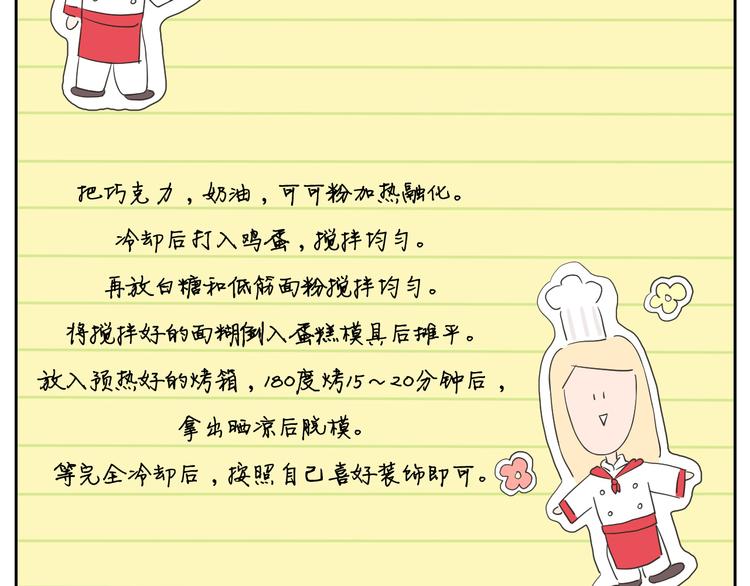 把巧克力，奶油，可可粉加热融化。
冷却后打入鸡蛋，搅拌均匀。
再放白糖和低筋面粉搅拌均匀。
将搅拌好的面糊倒入蛋糕模具后摊平。
放入预热好的烤箱，180度烤15～20分钟后，
拿出晒凉后脱模。
等完全冷却后，按照自己喜好装饰即可。